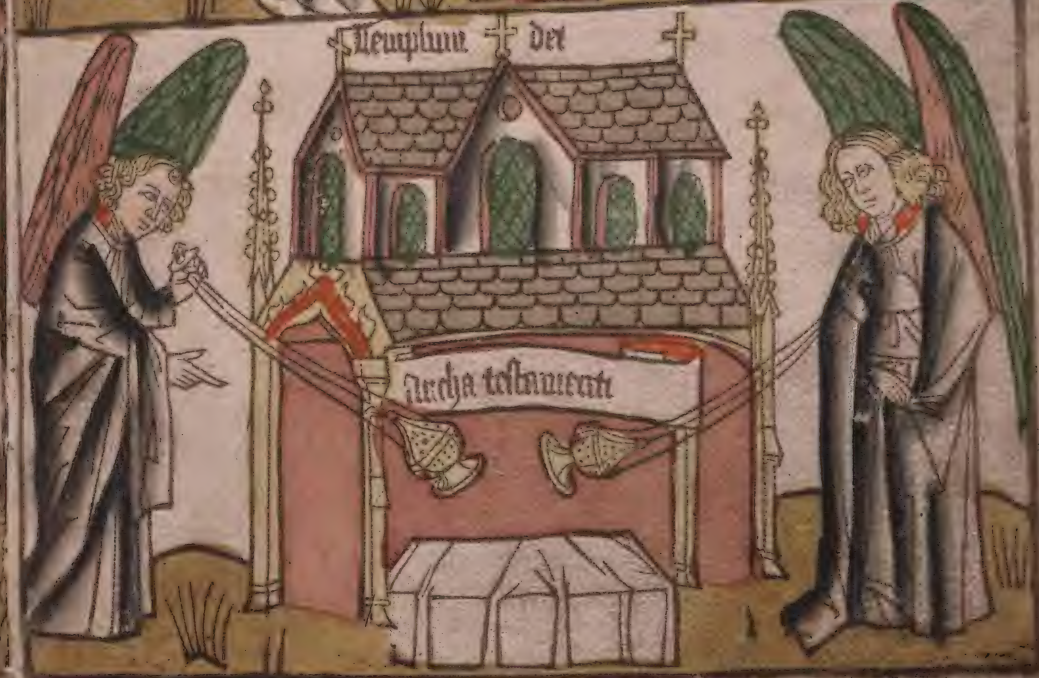 Templum dei
Archa testamenti